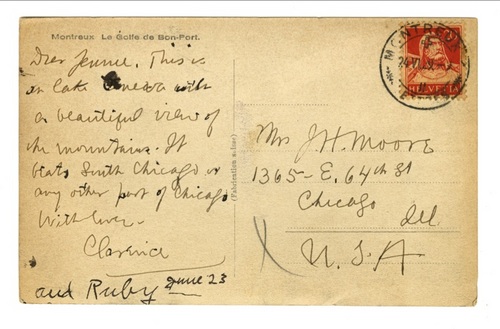 Montreux Le Golfe de Bon-Port.
Dear Jennie. This is
on lake Geneva with
a beautiful view of
the mountains. It
beats South Chicago or
any other part of Chicago
With love-
Clarence
and Ruby June 23
(Fabrication suisse)
MONTREUX
HELVETIA
Mrs J.H. Moore
1365- E. 64th St
Chicago
Ill.
U.S.A